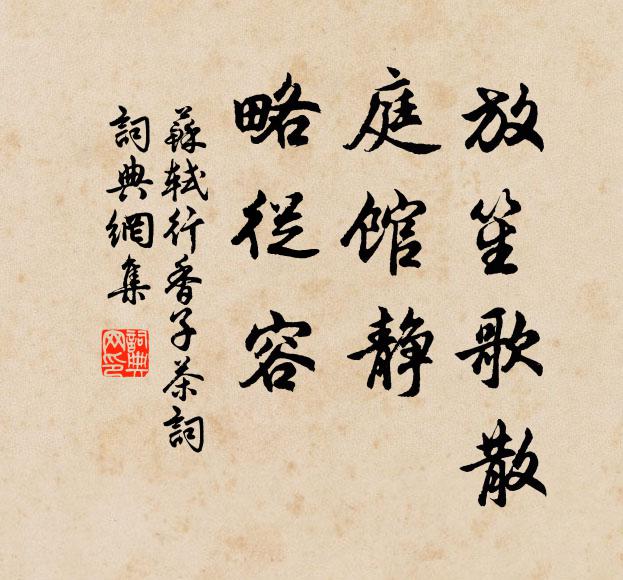 放笙歌散
庭館静
略從容
蘇軾行香子茶詞
詞典網集
詞典
网印